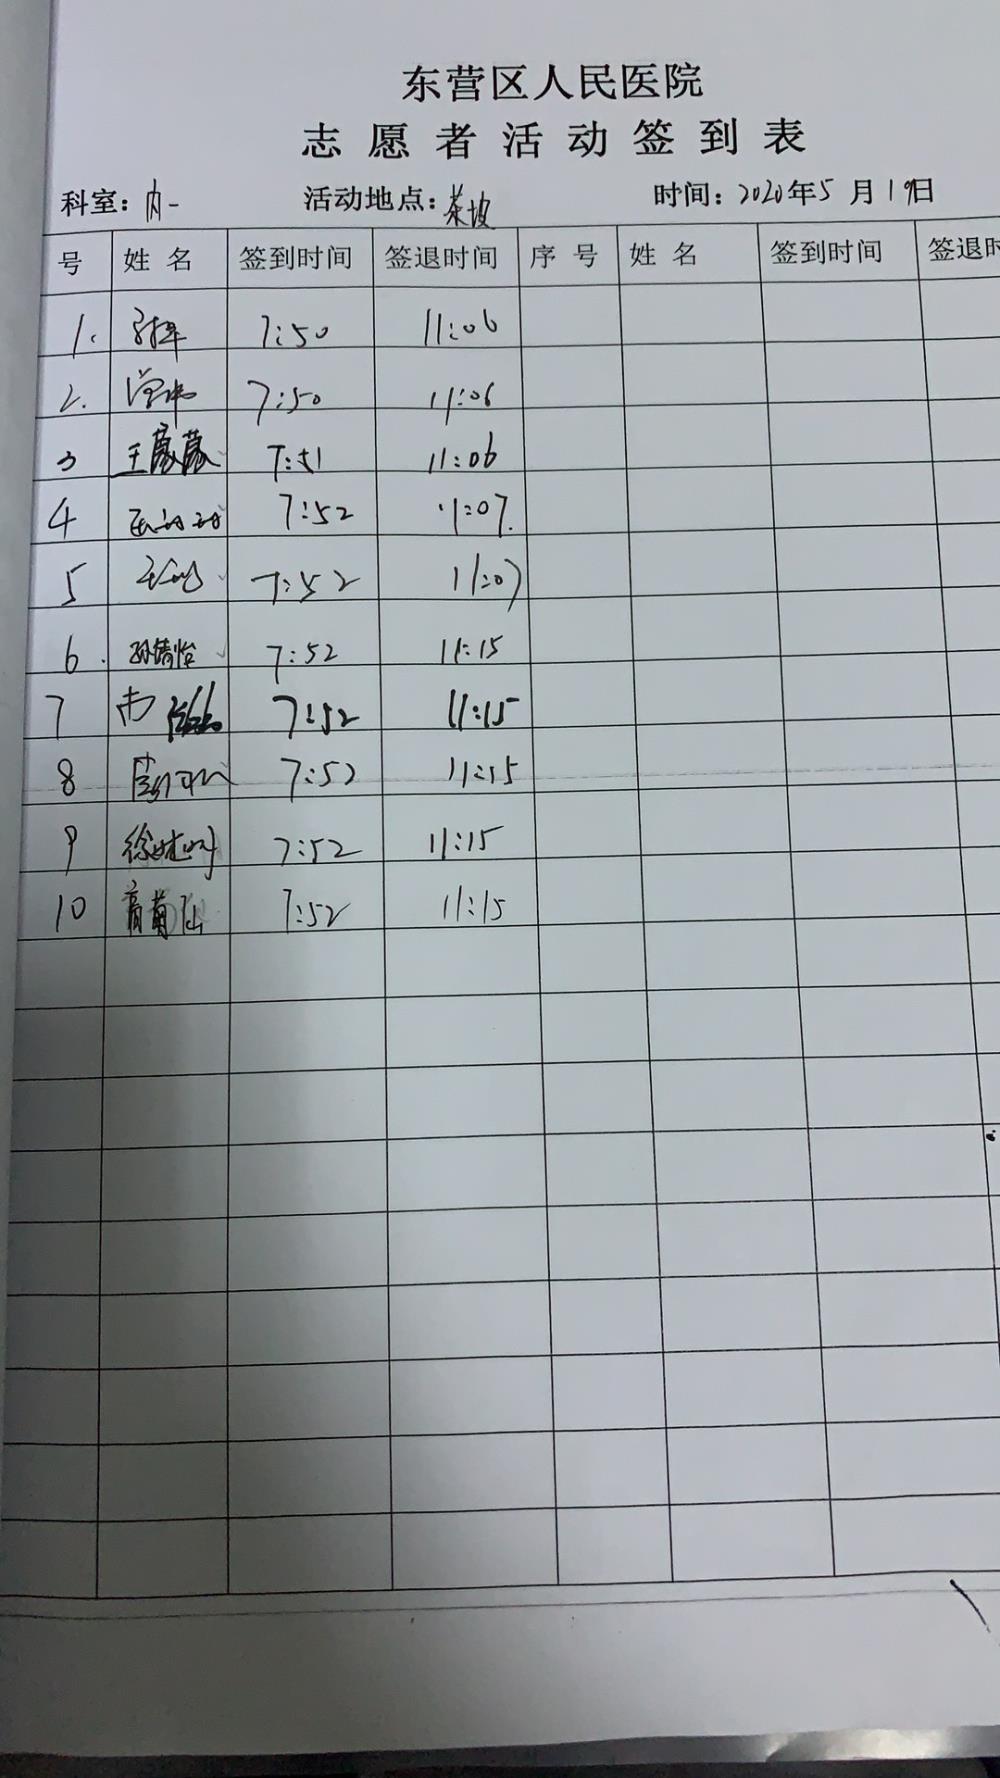 东营区人民医院
志愿者活动签到表
科室：内一 活动地点：茶坡 时间：2020年5月19日
号 姓名 签到时间 签退时间 序号 姓名 签到时间 签退时
1. 7:50 11:06
2. 7:50 11:06
3 王蒙蒙 7:51 11:06
4 7:52 11:07.
5 7:52 11:07
6. 孙倩怡 7:52 11:15
7 7:52 11:15
8 7:52 11:15
9 徐 7:52 11:15
10 高菊仙 7:52 11:15